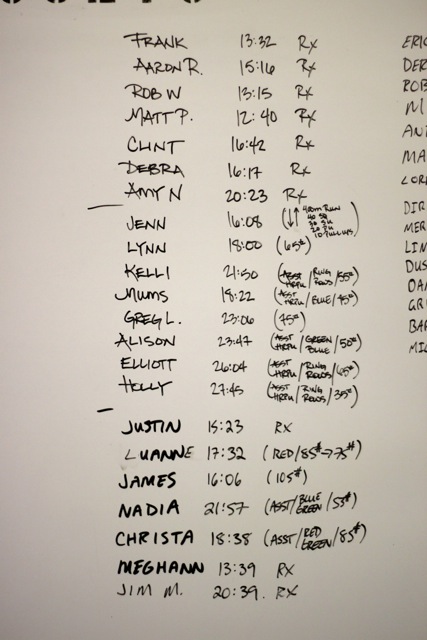 FRANK 13:32 Rx
AARON R. 15:16 Rx
ROB W 13:15 Rx
MATT P. 12:40 Rx
CLINT 16:42 Rx
DEBRA 16:17 Rx
AMY N 20:23 Rx
JENN 16:08 (↓↑ 400m RUN
10 PULL UPS)
LYNN 18:00 (65#)
KELLI 21:50 (ASST HRPU/RING ROWS/55#)
MUMS 18:22 (ASST HRPU/BLUE/45#)
GREG L. 23:06 (75#)
ALISON 23:47 (ASST HRPU/GREEN BLUE/50#)
ELLIOTT 26:04 (ASST HRPU/RING ROWS/65#)
HOLLY 27:45 (ASST HRPU/RING ROWS/35#)
JUSTIN 15:23 RX
LUANNE 17:32 (RED/85#→75#)
JAMES 16:06 (105#)
NADIA 21:57 (ASST/BLUE GREEN/55#)
CHRISTA 18:38 (ASST/RED GREEN/85#)
MEGHANN 13:39 RX
JIM M. 20:39. RX
ERIC
DER
ROB
M
AN
MA
LOR
DIR
MER
LIN
DUS
DAN
GRI
BAR
MIC